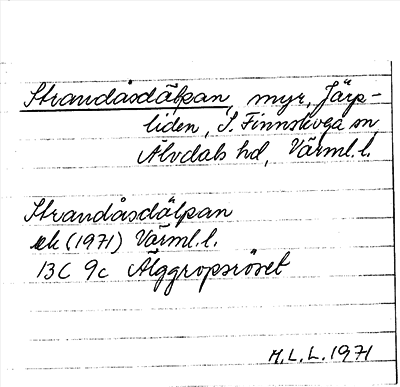 Strandåsdälpan, myr, Järp-
liden, S. Finnskoga sn,
Älvdals hd, Värml. l.
Strandåsdälpan
ek (1971) Värml. l.
13C 9c Älggropsröset
M. L. L. 1971